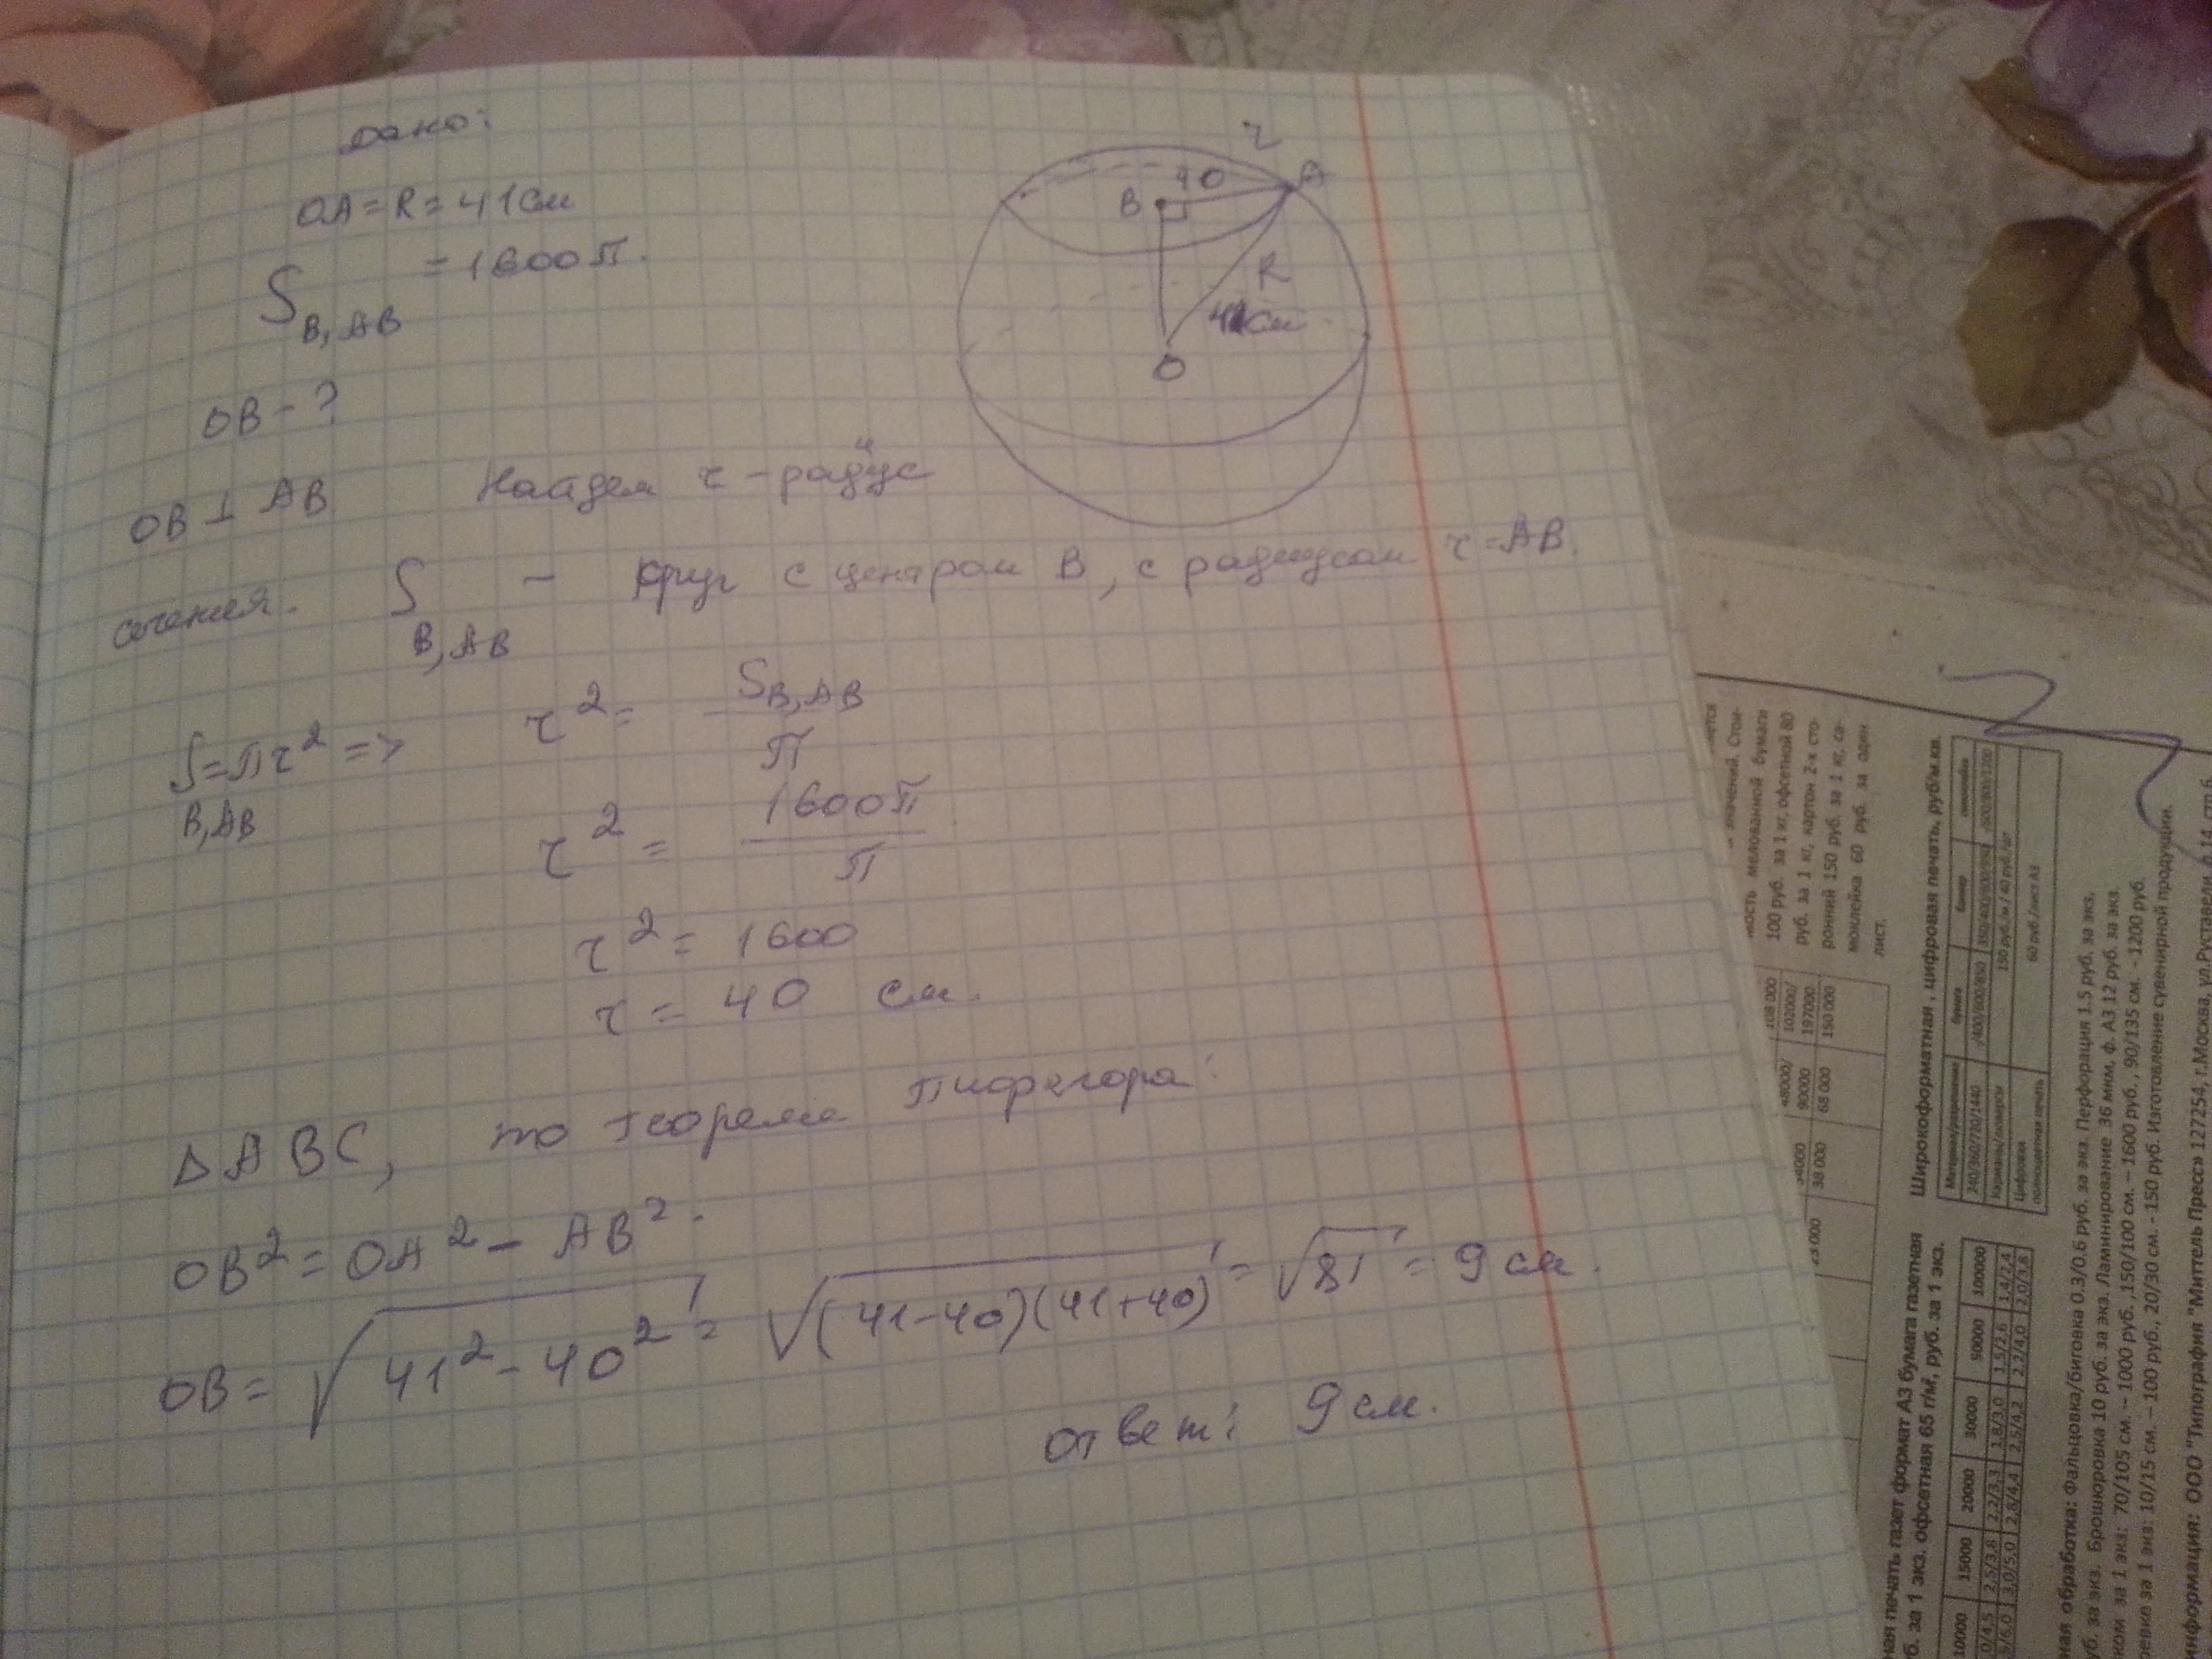 дано:
OA = R = 41 см
S B, AB = 1600π.
OB - ?
OB ⊥ AB Найдем r - радиус
сечения. S B, AB - круг с центром B, с радиусом r = AB.
S B, AB = πr² => r² = S B, AB / π
r² = 1600π / π
r² = 1600
r = 40 см.
Δ ABC, по теореме Пифагора:
OB² = OA² - AB².
OB = √(41² - 40²) = √((41-40)(41+40)) = √81 = 9 см.
ответ: 9 см.
r
40
A
B
R
41см
O
ность мелованной бумаги
100 руб. за 1 кг, офсетной 80
руб. за 1 кг, картон 2-х сто-
ронний 150 руб. за 1 кг, са-
моклейка 60 руб. за один
лист.
108 000
102000/
197000
150 000
48000/
90000
68 000
38 000
23 000
Широкоформатная, цифровая печать, руб/м.кв.
бумага
баннер
Цифровая
полноцветная печать
150 руб./м / 40 руб./шт
60 руб./лист А3
печать газет формат А3 бумага газетная
б. за 1 экз. офсетная 65 г/м², руб. за 1 экз.
10000 15000 20000 30000 50000 100000
2,5/3,8 2,2/3,3 1,8/3,0 1,5/2,6 1,4/2,4
3,0/5,0 2,8/4,4 2,5/4,2 2,2/4,0 2,0/3,8
обработка: Фальцовка/биговка 0.3/0.6 руб. за экз. Перфорация 1.5 руб. за экз.
уб. за экз. Брошюровка 10 руб. за экз. Ламинирование 36 мкм, ф. А3 12 руб. за экз
ком за 1 экз: 70/105 см. – 1000 руб. ,150/100 см. – 1600 руб., 90/135 см. - 1200 руб.
за 1 экз: 10/15 см. – 100 руб., 20/30 см. - 150 руб. Изготовление сувенирной продукции.
информация: ООО "Типография "Миттель Пресс" 127254 г.Москва, ул.Руставели д.14, стр.6